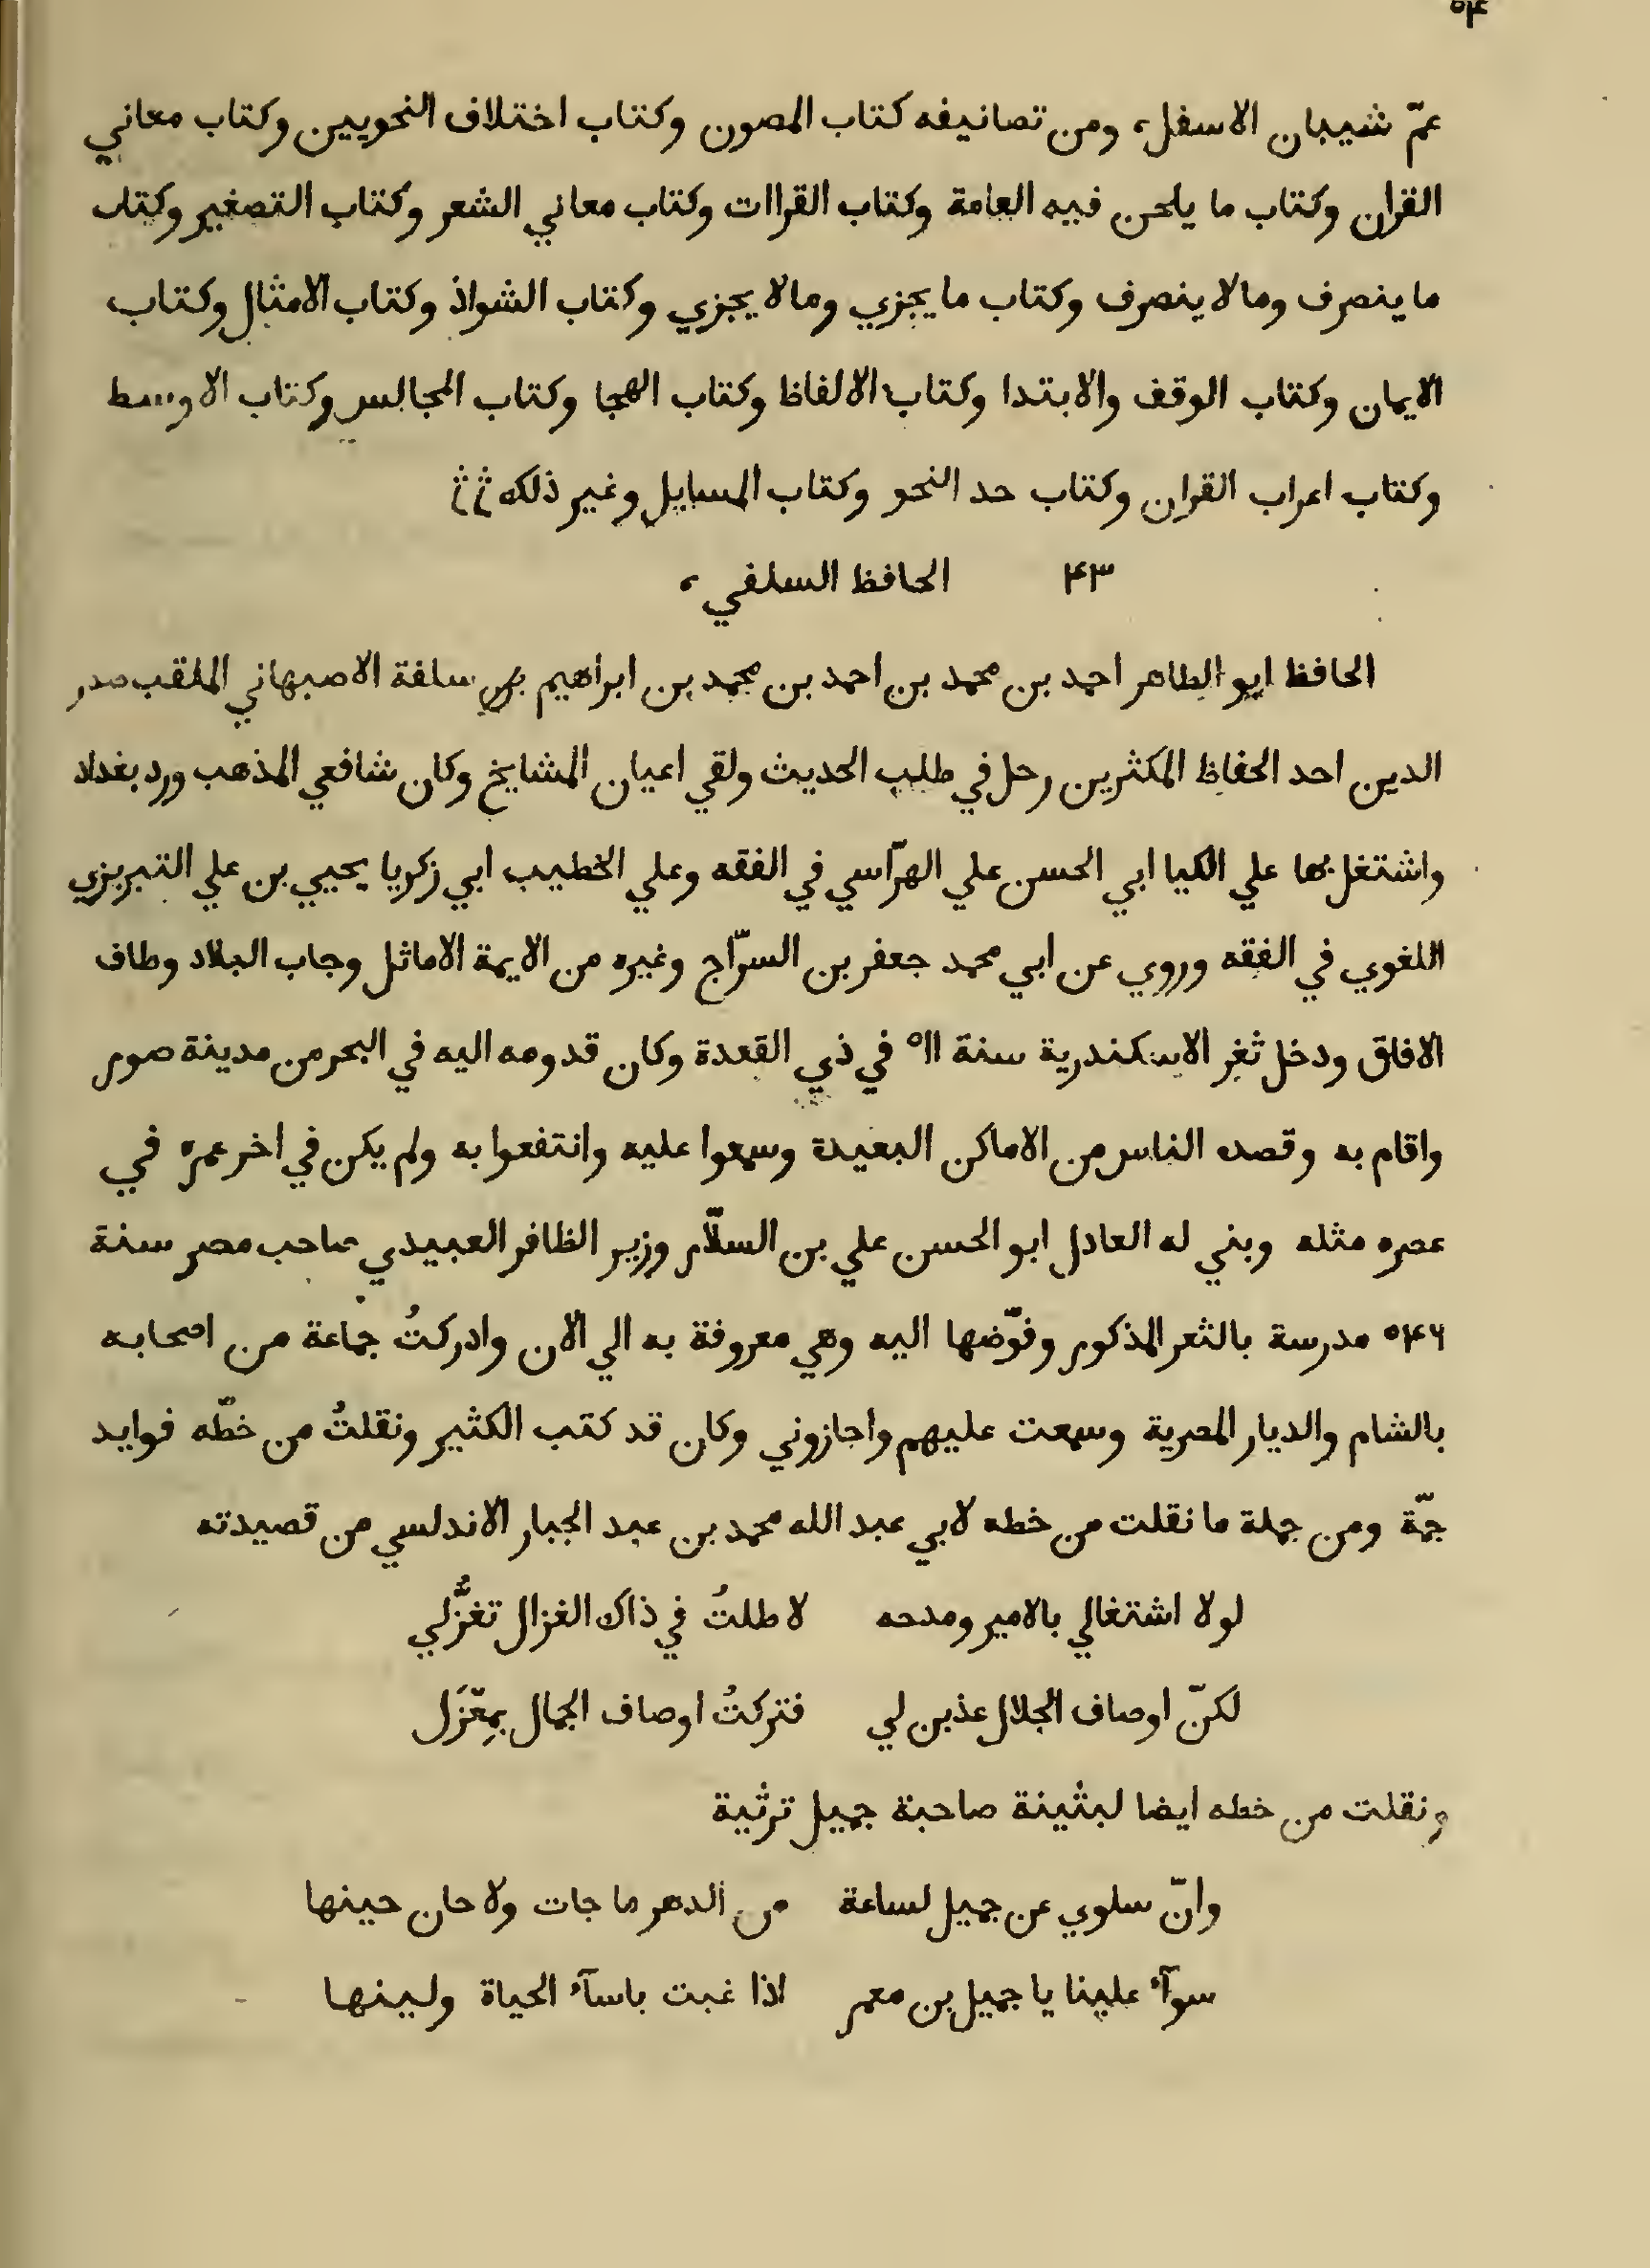 ٥٤
عمّ شيبان الاسفل، ومن تصانيفه كتاب المصون وكتاب اختلاف النحويين وكتاب معاني
القران وكتاب ما يلحن فيه العامة وكتاب القراات وكتاب معاني الشعر وكتاب التصغير وكتاب
ما ينصرف وما لا ينصرف وكتاب ما يجزي وما لا يجزي وكتاب الشواذ وكتاب الامثال وكتاب
الايمان وكتاب الوقف والابتدا وكتاب الالفاظ وكتاب الهجا وكتاب المجالس وكتاب الاوسط
وكتاب اعراب القران وكتاب حد النحو وكتاب المسايل وغير ذلك
٤٣ الحافظ السلفي،
الحافظ ابو الطاهر احمد بن محمد بن احمد بن محمد بن ابراهيم بن سلفة الاصبهاني الملقب صدر
الدين احد الحفاظ المكثرين رحل في طلب الحديث ولقي اعيان المشايخ وكان شافعي المذهب ورد بغداد
واشتغل بها علي الكيا ابي الحسن علي الهرّاسي في الفقه وعلي الخطيب ابي زكريا يحيي بن علي التبريزي
اللغوي في الفقه وروي عن ابي محمد جعفر بن السرّاج وغيره من الايمة الاماثل وجاب البلاد وطاف
الافاق ودخل ثغر الاسكندرية سنة ٥١١ في ذي القعدة وكان قدومه اليه في البحر من مدينة صور
واقام به وقصده الناس من الاماكن البعيدة وسمعوا عليه وانتفعوا به ولم يكن في اخر عمره في
عصره مثله وبني له العادل ابو الحسن علي بن السلّار وزير الظافر العبيدي صاحب مصر سنة
٥٤٦ مدرسة بالثغر المذكور وفوّضها اليه وهي معروفة به الي الان وادركتُ جماعة من اصحابه
بالشام والديار المصرية وسمعت عليهم واجازوني وكان قد كتب الكثير ونقلتُ من خطّه فوايد
جمّة ومن جملة ما نقلت من خطه لابي عبد الله محمد بن عبد الجبار الاندلسي من قصيدته
لولا اشتغالي بالامير ومدحه لاطلتُ في ذاك الغزال تغزُّلي
لكنّ اوصاف الجلال عذبن لي فتركتُ اوصاف الجمال بمِعْزَل
ونقلت من خطه ايضا لبثينة صاحبة جميل ترثية
وانّ سلوي عن جميل لساعة من الدهر ما جات ولا حان حينها
سوآء علينا يا جميل بن معمر اذا غبت باسآء الحياة ولينها